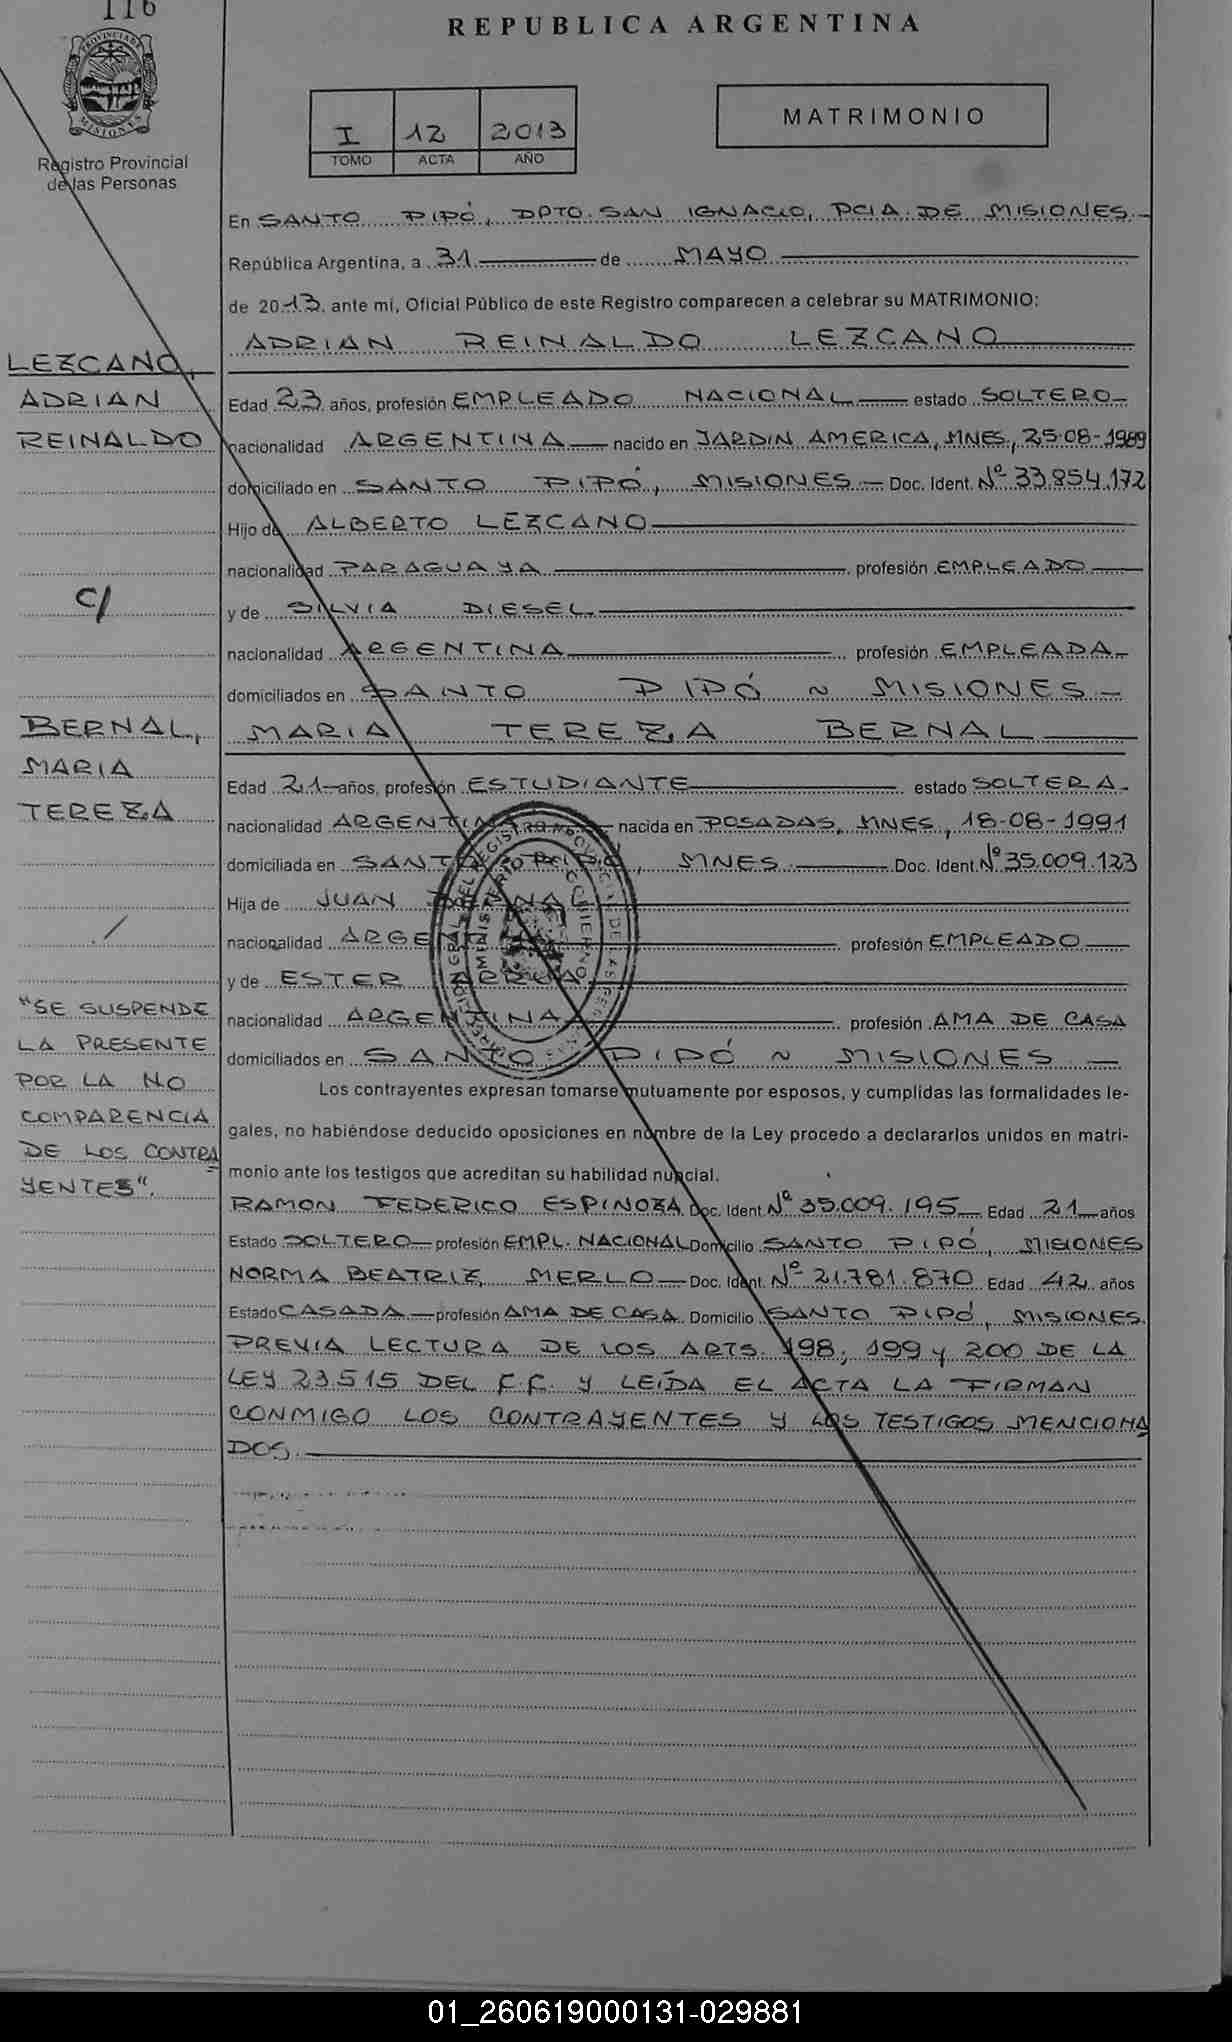 116
REPUBLICA ARGENTINA
PROVINCIA DE MISIONES
Registro Provincial
de las Personas
I 12 2013
TOMO ACTA AÑO
MATRIMONIO
En SANTO PIPÓ, DPTO. SAN IGNACIO, PCIA. DE MISIONES.-
República Argentina, a 31 de MAYO
de 2013, ante mí, Oficial Público de este Registro comparecen a celebrar su MATRIMONIO:
ADRIAN REINALDO LEZCANO
LEZCANO,
ADRIAN
REINALDO
Edad 23 años, profesión EMPLEADO NACIONAL estado SOLTERO-
nacionalidad ARGENTINA nacido en JARDIN AMERICA, MNES, 25-08-1989
domiciliado en SANTO PIPÓ, MISIONES.- Doc. Ident. Nº 33.854.172
Hijo de ALBERTO LEZCANO
nacionalidad PARAGUAYA profesión EMPLEADO
C/
y de SILVIA DIESEL
nacionalidad ARGENTINA profesión EMPLEADA-
domiciliados en SANTO PIPÓ ~ MISIONES.-
BERNAL,
MARIA
TEREZA
MARIA TEREZA BERNAL
Edad 21 años, profesión ESTUDIANTE estado SOLTERA.
nacionalidad ARGENTINA nacida en POSADAS, MNES, 18-08-1991
domiciliada en SANTO PIPÓ, MNES. Doc. Ident. Nº 35.009.123
Hija de JUAN BERNAL
nacionalidad ARGENTINA profesión EMPLEADO
y de ESTER
nacionalidad ARGENTINA profesión AMA DE CASA
domiciliados en SANTO PIPÓ ~ MISIONES.-
"SE SUSPENDE
LA PRESENTE
POR LA NO
COMPARENCIA
DE LOS CONTRA
YENTES".
Los contrayentes expresan tomarse mutuamente por esposos, y cumplidas las formalidades le-
gales, no habiéndose deducido oposiciones en nombre de la Ley procedo a declararlos unidos en matri-
monio ante los testigos que acreditan su habilidad nupcial.
RAMON FEDERICO ESPINOZA Doc. Ident. Nº 35.009.195 Edad 21 años
Estado SOLTERO profesión EMPL. NACIONAL Domicilio SANTO PIPÓ, MISIONES
NORMA BEATRIZ MERLO Doc. Ident. Nº 21.781.870 Edad 42 años
Estado CASADA profesión AMA DE CASA Domicilio SANTO PIPÓ, MISIONES.
PREVIA LECTURA DE LOS ARTS. 198, 199 y 200 DE LA
LEY 23.515 DEL C.C. y LEÍDA EL ACTA LA FIRMAN
CONMIGO LOS CONTRAYENTES y LOS TESTIGOS MENCIONA
DOS.
01_260619000131-029881